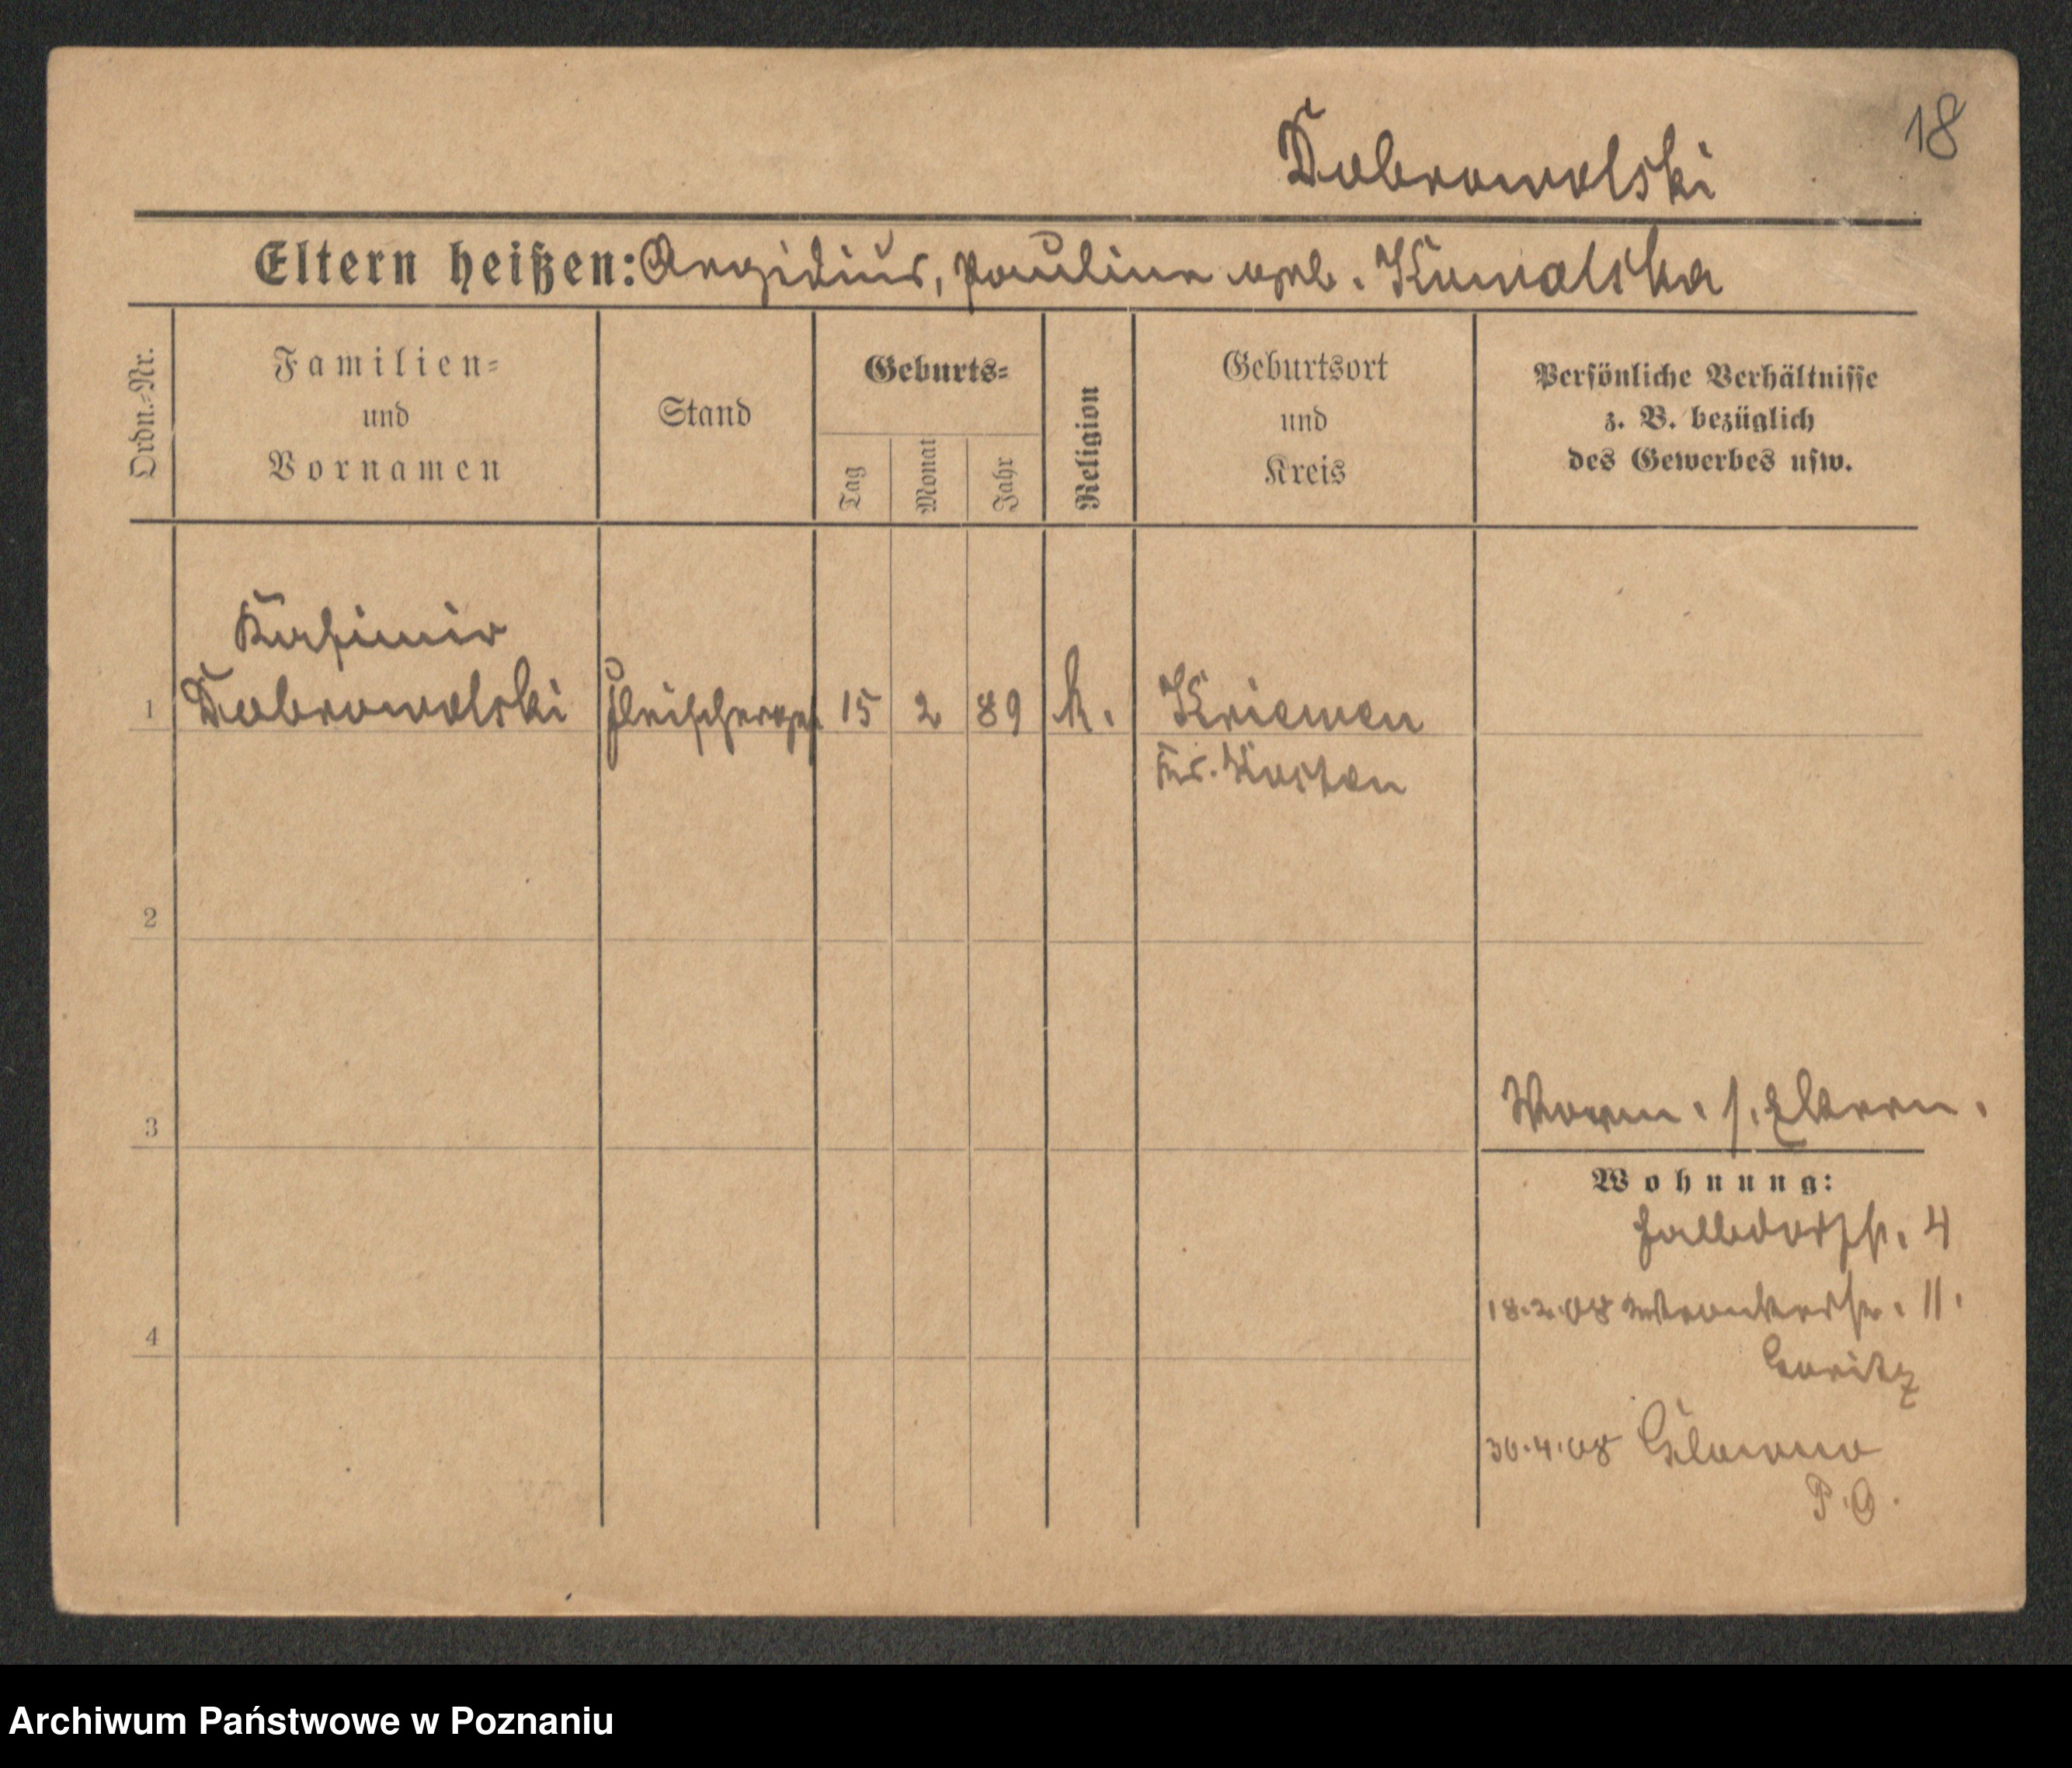 18
Dobrowolski
Eltern heißen: Aegidius, Pauline geb. Kowalska
Ordn.-Nr.
Familien-
und
Vornamen
Stand
Geburts-
Tag
Monat
Jahr
Religion
Geburtsort
und
Kreis
Persönliche Verhältnisse
z. B. bezüglich
des Gewerbes usw.
Kasimir
1 Dobrowolski Fleischerges 15 2 89 k. Kriewen
Kr. Kosten
2
3
s. Eltern.
Wohnung:
Halbdorfstr. 4
4
18.2.08 11.
30.4.08 Glowno
P. O.
Archiwum Państwowe w Poznaniu